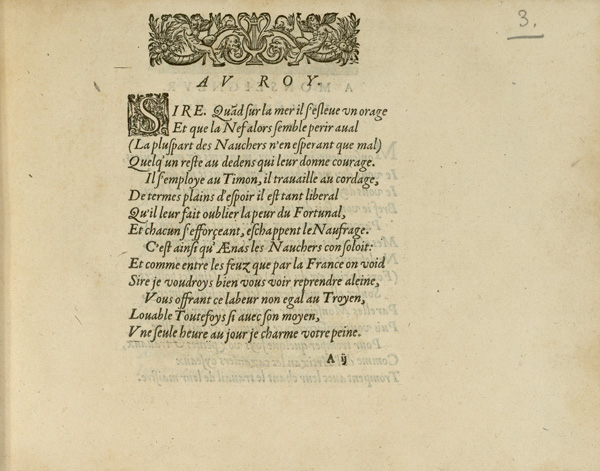 3.
AV ROY.
SIRE. Quãd sur la mer il s'esleue vn orage
Et que la Nef alors semble perir aual
(La pluspart des Nauchers n'en esperant que mal)
Quelq'un reste au dedens qui leur donne courage.
Il s'employe au Timon, il trauaille au cordage,
De termes plains d'espoir il est tant liberal
Qu'il leur fait oublier la peur du Fortunal,
Et chacun s'efforçeant, eschappent le Naufrage.
C'est ainsi qu'Ænas les Nauchers consoloit:
Et comme entre les feuz que par la France on void
Sire je voudroys bien vous voir reprendre aleine,
Vous offrant ce labeur non egal au Troyen,
Louable Toutefoys si auec son moyen,
Vne seule heure au jour je charme votre peine.
A ij